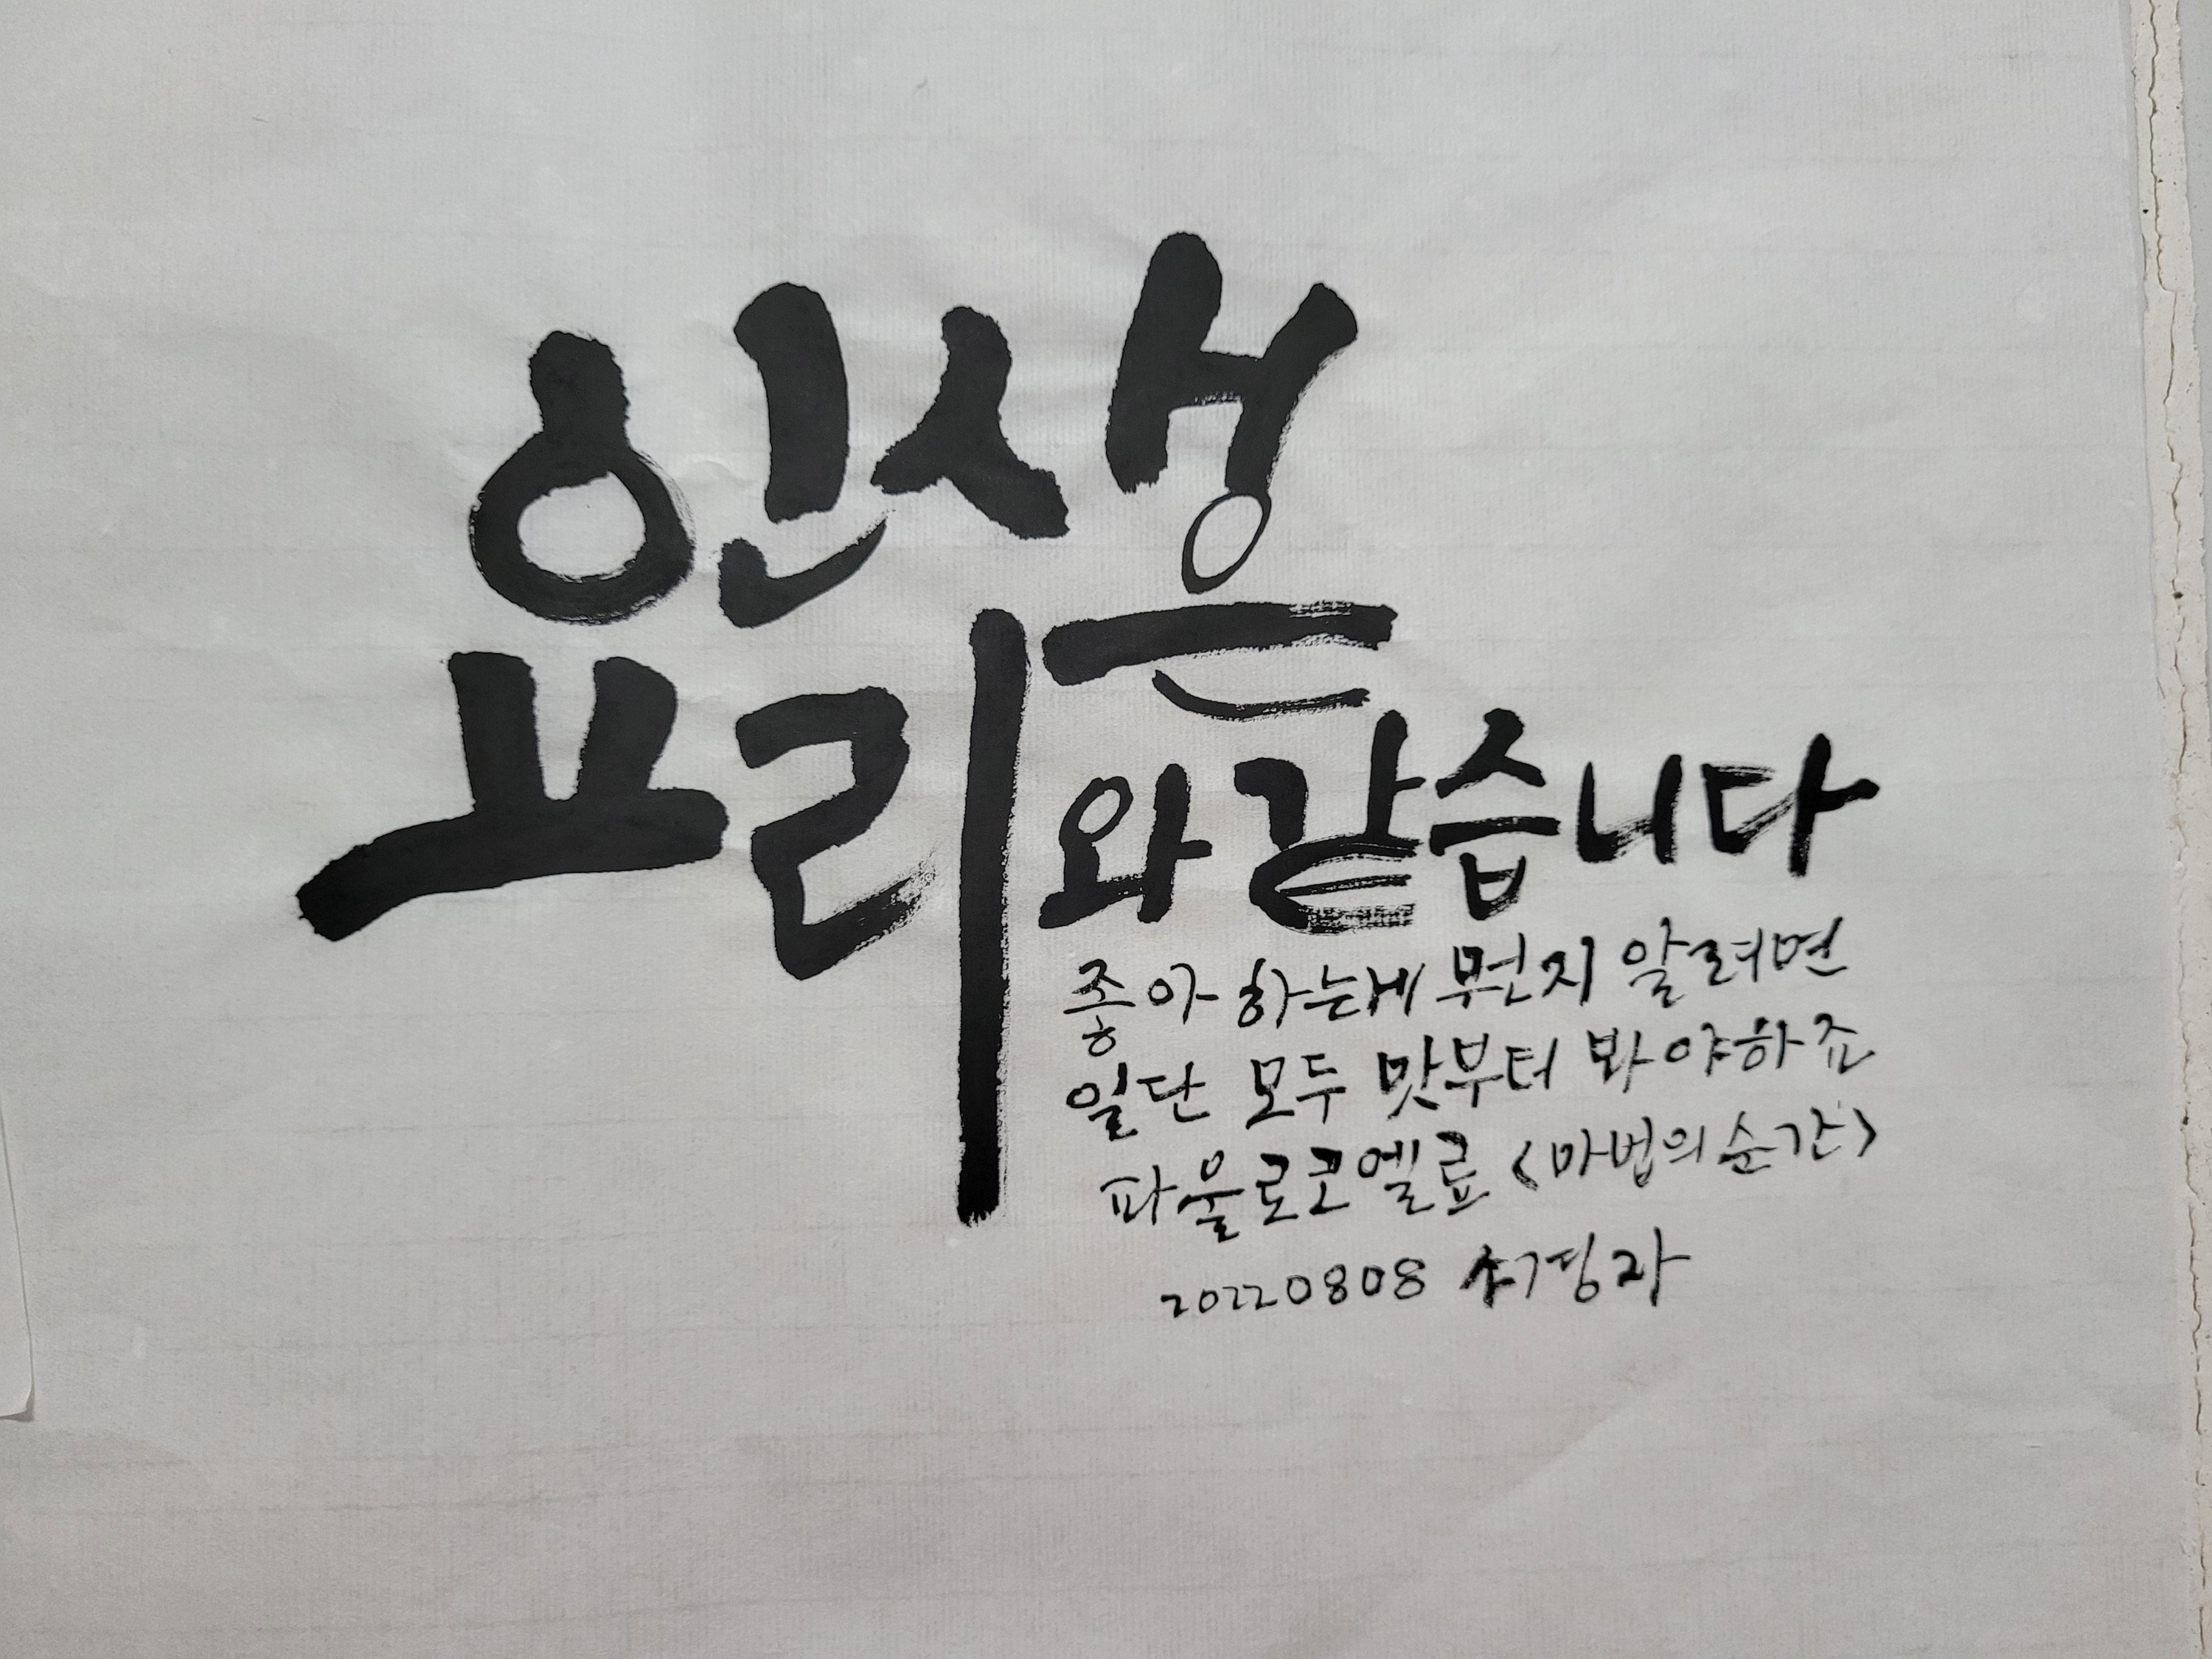 인생은
요리와 같습니다
좋아 하는게 뭔지 알려면
일단 모두 맛부터 봐야하죠
파울로코엘료 <마법의 순간>
20220808